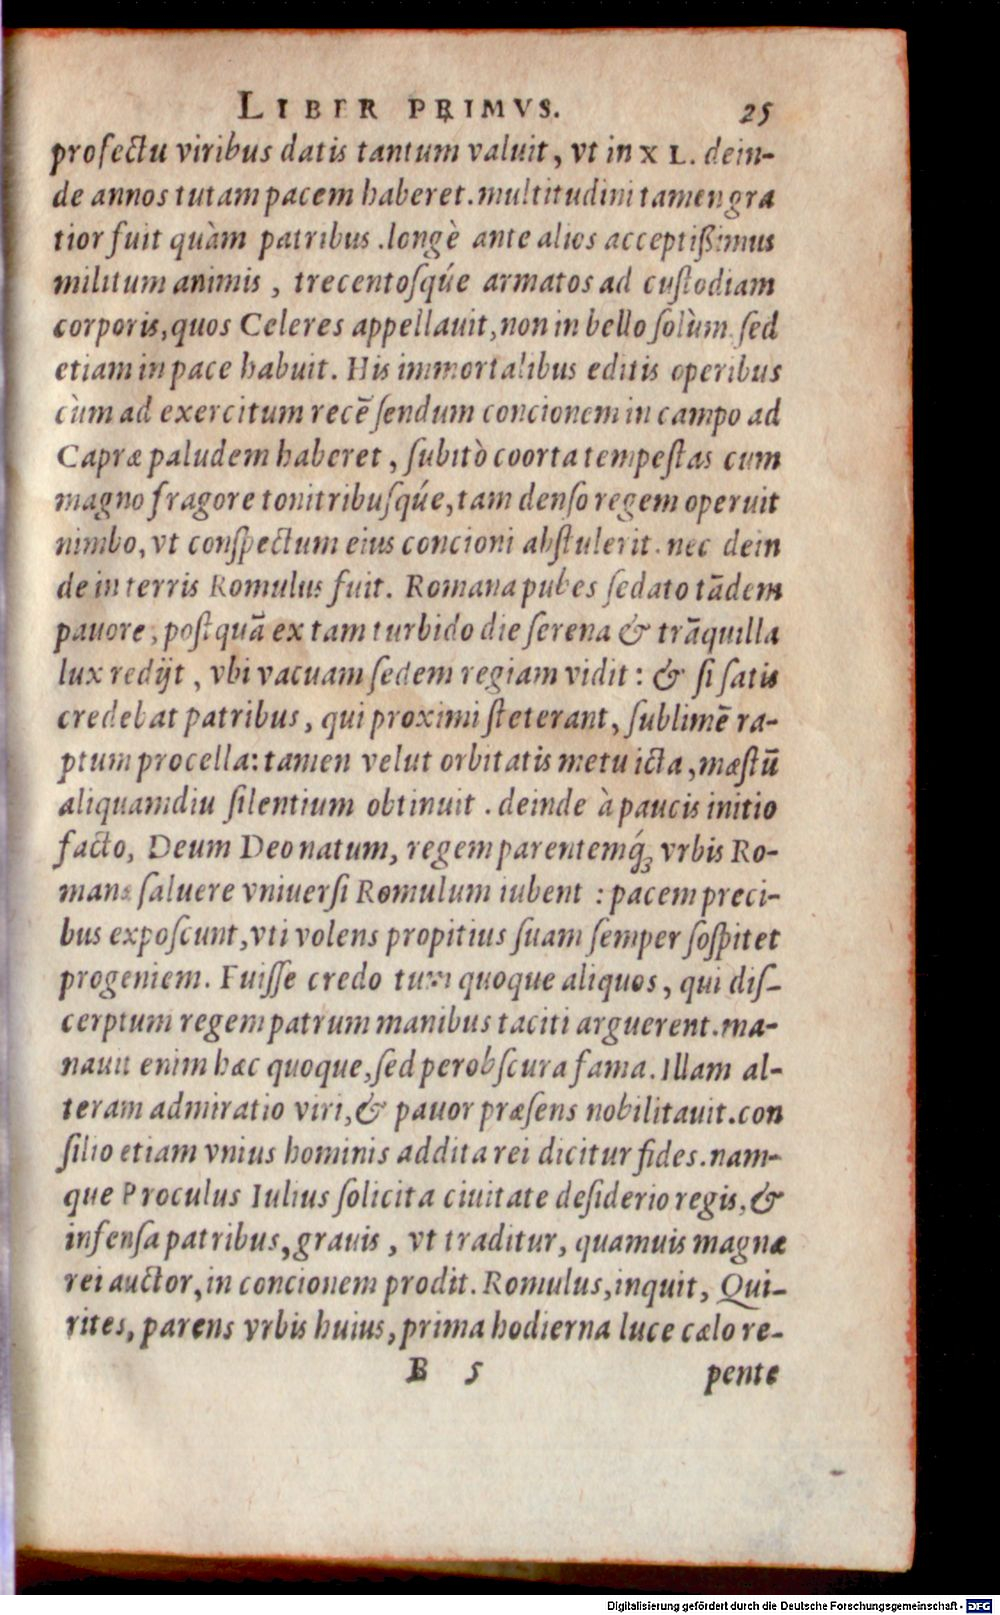 LIBER PRIMVS. 25
profectu viribus datis tantum valuit, vt in XL. dein-
de annos tutam pacem haberet. multitudini tamen gra
tior fuit quàm patribus. longè ante alios acceptißimus
militum animis, trecentosqúe armatos ad custodiam
corporis, quos Celeres appellauit, non in bello solùm, sed
etiam in pace habuit. His immortalibus editis operibus
cùm ad exercitum recēsendum concionem in campo ad
Capræ paludem haberet, subitò coorta tempestas cum
magno fragore tonitribusqúe, tam denso regem operuit
nimbo, vt conspectum eius concioni abstulerit. nec dein
de in terris Romulus fuit. Romana pubes sedato tādem
pauore, postquā ex tam turbido die serena & trāquilla
lux redijt, vbi vacuam sedem regiam vidit: & si satis
credebat patribus, qui proximi steterant, sublimē ra-
ptum procella: tamen velut orbitatis metu icta, mæstū
aliquamdiu silentium obtinuit. deinde à paucis initio
facto, Deum Deo natum, regem parentemq́; vrbis Ro-
manæ saluere vniuersi Romulum iubent: pacem preci-
bus exposcunt, vti volens propitius suam semper sospitet
progeniem. Fuisse credo tum quoque aliquos, qui dis-
cerptum regem patrum manibus taciti arguerent. ma-
nauit enim hæc quoque, sed perobscura fama. Illam al-
teram admiratio viri, & pauor præsens nobilitauit. con
silio etiam vnius hominis addita rei dicitur fides. nam-
que Proculus Iulius solicita ciuitate desiderio regis, &
infensa patribus, grauis, vt traditur, quamuis magnæ
rei auctor, in concionem prodit. Romulus, inquit, Qui-
rites, parens vrbis huius, prima hodierna luce cælo re-
B 5 pente
Digitalisierung gefördert durch die Deutsche Forschungsgemeinschaft - DFG